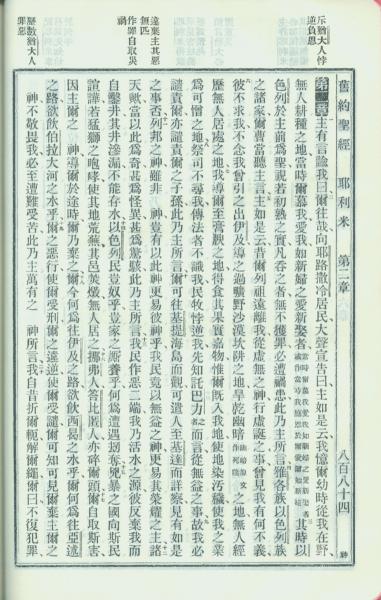 舊約聖經 耶利米 第二章 八百八十四
斥猶大人悖
逆負恩
遠棄主其惡
無匹
作罪自取災
禍
歷數猶大人
罪惡
第二章 主有言諭我曰爾往哉向耶路撒冷居民大聲宣告曰主如是云我憶爾幼時從我在野
無人耕種之地當時爾慕我愛我如新婦之愛新娶者
其時以
色列於主爲聖視若初熟之實凡吞之者無不獲罪必遭禍患此乃主所言雅各族以色列族
之諸家爾曹當聽主言主如是云昔爾列祖遠離我從虛無之神行虛誕之事曾見我有何不義
彼不求我不念我曾引之出伊及導之過曠野沙漠坎阱之地旱乾幽暗
之地無人經
歷無人居處之地我導爾至膏腴之地得食其果實嘉物惟爾既入我地使地染污穢使我之業
爲可憎之地祭司不尋我傳法者不識我民牧悖逆我先知託巴力
而言從無益之事故我必
譴責爾亦譴責爾之子孫此乃主所言爾可往基提海島而觀可遣人至基達而詳察見有如是
之事否列邦之神雖非神豈有以此神更易彼神乎我民竟以無益之神更易其榮耀之主諸
天歟當以此爲奇甚爲怪異甚爲驚駭此乃主所言我民作惡二端我乃活水之源彼反棄我而
自鑿井其井滲漏不能存水以色列民豈奴乎豈家之
乎何爲遭遇
國向斯民
諠譁若猛獅之咆哮使其地荒蕪其邑焚燬無人居之挪弗人答比匿人亦碎爾頭爾自取斯害
因主爾之神導爾於途時爾乃棄之爾今何爲往伊及之路欲飲西曷之水乎爾何爲往亞述
之路欲飲伯拉大河之水乎爾之惡行使爾受刑爾之違逆使爾受譴爾可知可見爾棄主爾之
神不敬畏我必至遭難受苦此乃主萬有之神所言我自昔折爾軛解爾繩爾曰不復犯罪